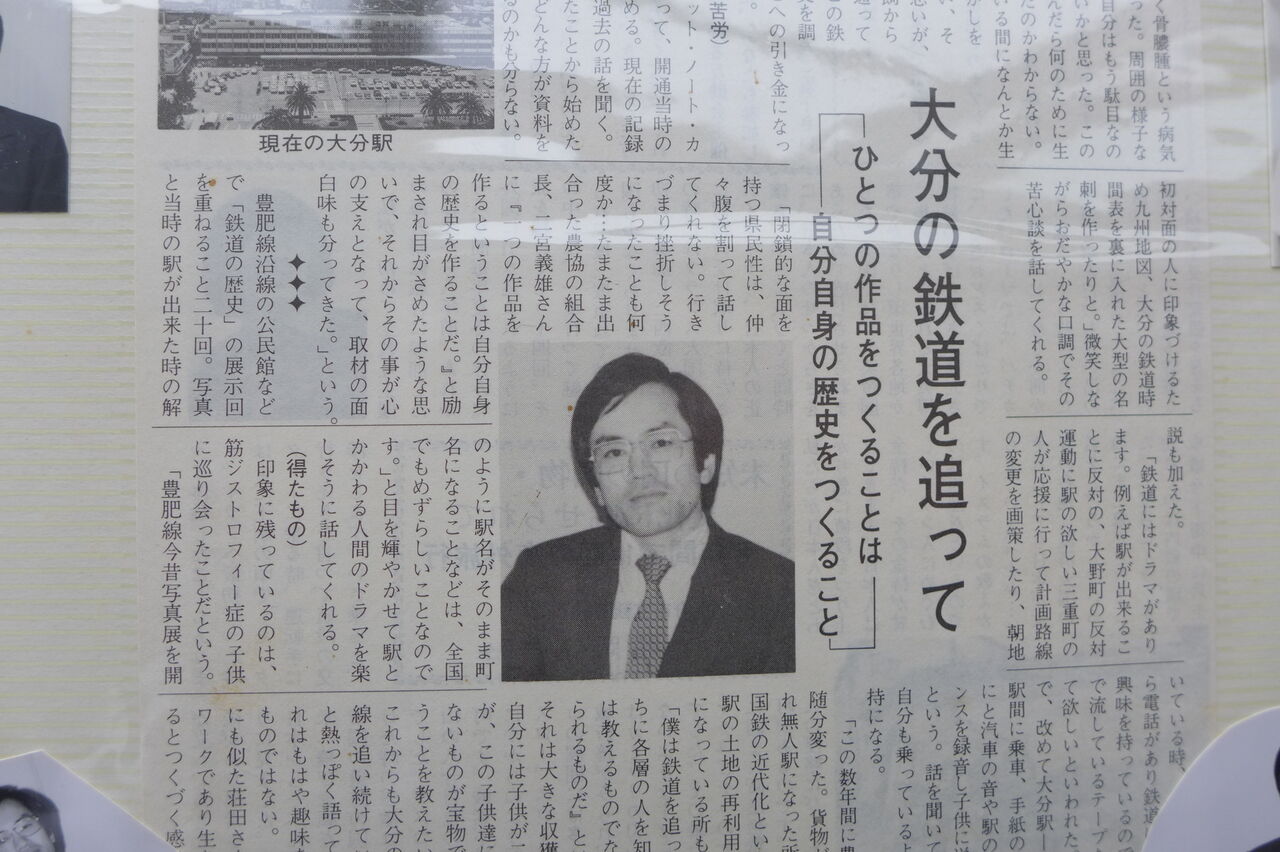 く骨膿腫という病気
った。周囲の様子な
自分はもう駄目なの
いかと思った。この
んだら何のために生
たのかわからない。
いる間になんとか生
かしを
い、そ
思いが、
調から
追って
この鉄
を調
への引き金になっ
苦労）
ット・ノート・カ
って、開通当時の
める。現在の記録
過去の話を聞く。
たことから始めた
どんな方が資料を
るのかも分らない。
現在の大分駅
大分の鉄道を追って
ひとつの作品をつくることは
自分自身の歴史をつくること
初対面の人に印象づけるた
め九州地図、大分の鉄道時
間表を裏に入れた大型の名
刺を作ったりと。」微笑しな
がらおだやかな口調でその
苦心談を話してくれる。
「閉鎖的な面を
持つ県民性は、仲
々腹を割って話し
てくれない。行き
づまり挫折しそう
になったことも何
度か…たまたま出
合った農協の組合
長、二宮義雄さん
に『一つの作品を
作るということは自分自身
の歴史を作ることだ。』と励
まされ目がさめたような思
いで、それからその事が心
の支えとなって、取材の面
白味も分ってきた。」という。
✦✦✦
豊肥線沿線の公民館など
で「鉄道の歴史」の展示回
を重ねること二十回。写真
と当時の駅が出来た時の解
説も加えた。
「鉄道にはドラマがあり
ます。例えば駅が出来るこ
とに反対の、大野町の反対
運動に駅の欲しい三重町の
人が応援に行って計画路線
の変更を画策したり、朝地
のように駅名がそのまま町
名になることなどは、全国
でもめずらしいことなので
す。」と目を輝やかせて駅と
かかわる人間のドラマを楽
しそうに話してくれる。
（得たもの）
印象に残っているのは、
筋ジストロフィー症の子供
に巡り会ったことだという。
「豊肥線今昔写真展を開
いている時、
ら電話があり鉄道
興味を持っているので
で流しているテープ
て欲しいといわれた
で、改めて大分駅―
駅間に乗車、手紙の
にと汽車の音や駅の
ンスを録音し子供に送
という。話を聞いて
自分も乗っているよ
持になる。
「この数年間に豊
随分変った。貨物が
れ無人駅になった所
国鉄の近代化とい
駅の土地の再利用
になっている所も
「僕は鉄道を追っ
ちに各層の人を知
は教えるものでな
られるものだ』と
それは大きな収穫
自分には子供が二
が、この子供達に
ないものが宝物で
うことを教えたい
これからも大分の
線を追い続けてい
と熱っぽく語って
れはもはや趣味
ものではない。
にも似た荘田さ
ワークであり生
るとつくづく感